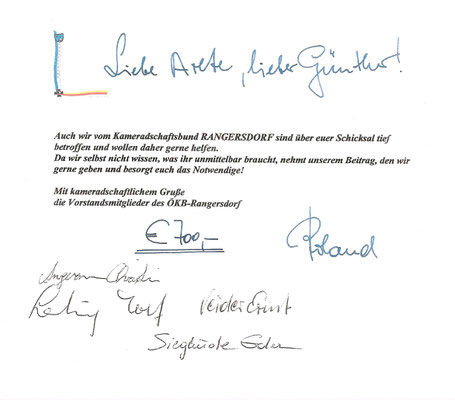 Liebe Arete, lieber Günther!
Auch wir vom Kameradschaftsbund RANGERSDORF sind über euer Schicksal tief
betroffen und wollen daher gerne helfen.
Da wir selbst nicht wissen, was ihr unmittelbar braucht, nehmt unserem Beitrag, den wir
gerne geben und besorgt euch das Notwendige!
Mit kameradschaftlichem Gruße
die Vorstandsmitglieder des ÖKB-Rangersdorf
€ 700,-
Roland
Ernst
Sieglinde